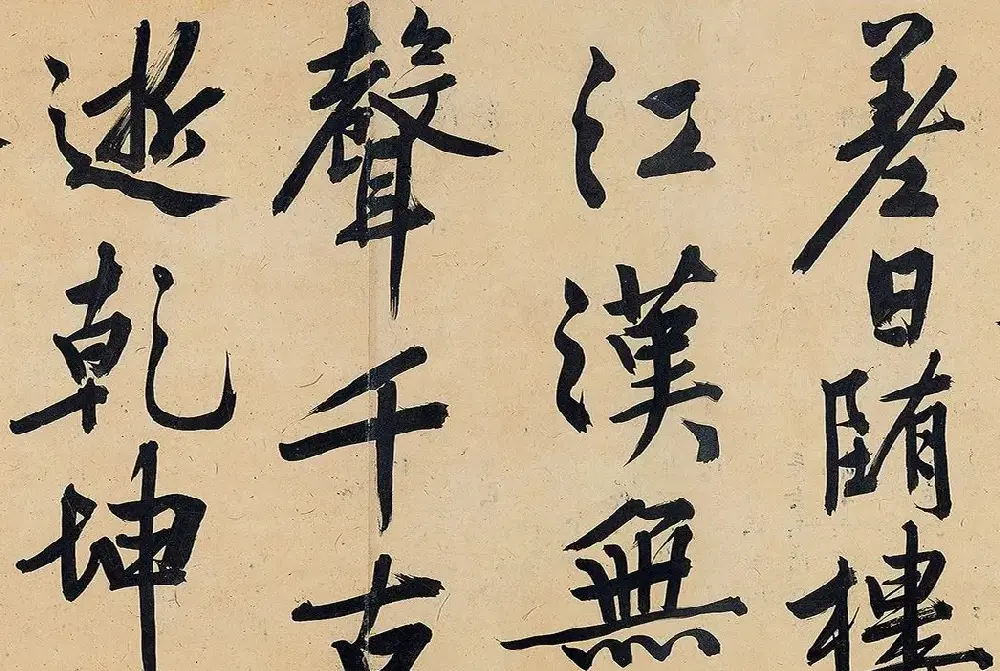 差日陏樓
江漢無
聲千古
逝乾坤